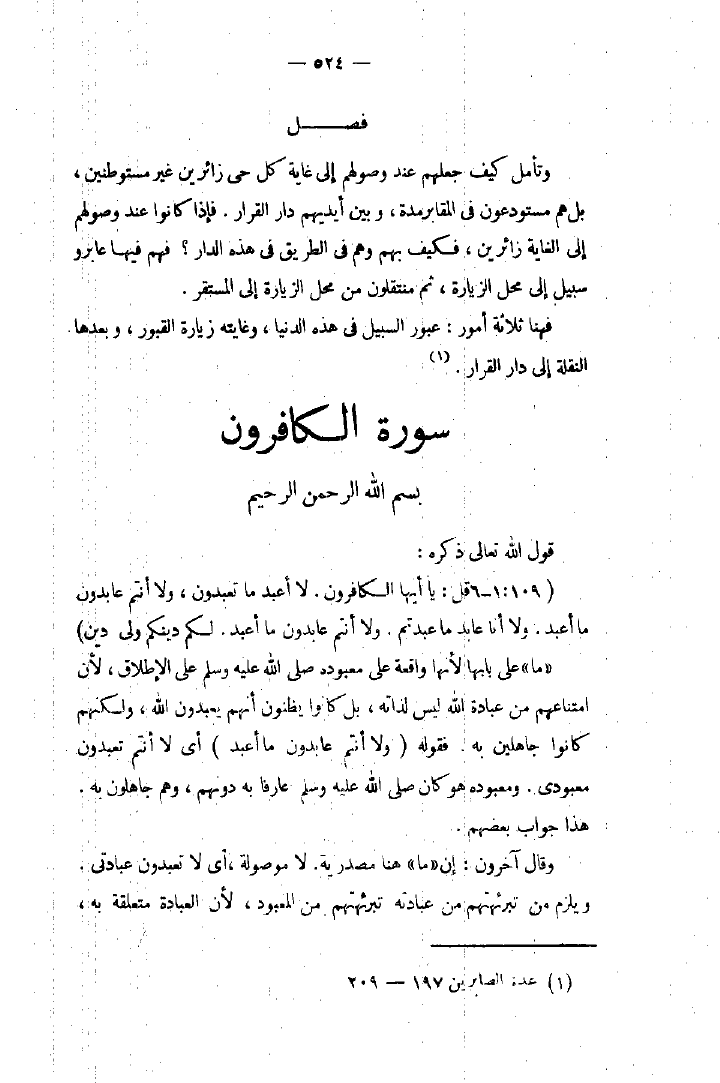 — ٥٢٤ —
فصــــل
وتأمل كيف جعلهم عند وصولهم إلى غاية كل حى زائرين غير مستوطنين ،
بل هم مستودعون فى المقابر مدة ، وبين أيديهم دار القرار . فإذا كانوا عند وصولهم
إلى الغاية زائرين ، فكيف بهم وهم فى الطريق فى هذه الدار ؟ فهم فيها عابرو
سبيل إلى محل الزيارة ، ثم منتقلون من محل الزيارة إلى المستقر .
فهنا ثلاثة أمور : عبور السبيل فى هذه الدنيا ، وغايته زيارة القبور ، وبعدها
النقلة إلى دار القرار . (١)
سورة الكافرون
بسم الله الرحمن الرحيم
قول الله تعالى ذكره :
( ١٠٩ : ١–٦ قل : يا أيها الكافرون . لا أعبد ما تعبدون ، ولا أنتم عابدون
ما أعبد . ولا أنا عابد ما عبدتم . ولا أنتم عابدون ما أعبد . لكم دينكم ولى دين)
«ما» على بابها لأنها واقعة على معبوده صلى الله عليه وسلم على الإطلاق ، لأن
امتناعهم من عبادة الله ليس لذاته ، بل كانوا يظنون أنهم يعبدون الله ، ولكنهم
كانوا جاهلين به . فقوله ( ولا أنتم عابدون ما أعبد ) أى لا أنتم تعبدون
معبودى . ومعبوده هو كان صلى الله عليه وسلم عارفا به دونهم ، وهم جاهلون به .
هذا جواب بعضهم .
وقال آخرون : إن «ما» هنا مصدرية . لا موصولة ، أى لا تعبدون عبادتى .
ويلزم من تبرئتهم من عبادته تبرئتهم من المعبود ، لأن العبادة متعلقة به ،
(١) عدة الصابرين ١٩٧ — ٢٠٩